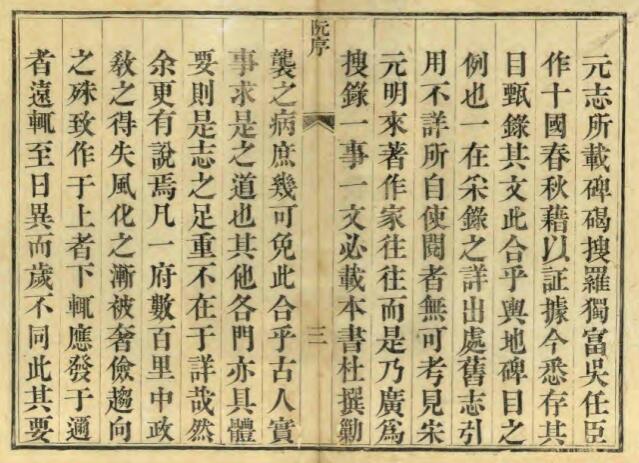 元志所載碑碣搜羅獨富吳任臣
作十國春秋藉以証據今悉存其
目甄錄其文此合乎輿地碑目之
例也一在采錄之詳出處舊志引
用不詳所自使閱者無可考見宋
元明來著作家往往而是乃廣爲
搜錄一事一文必載本書杜撰勦
阮序
三
襲之病庶幾可免此合乎古人實
事求是之道也其他各門亦具體
要則是志之足重不在于詳哉然
余更有說焉凡一府數百里中政
敎之得失風化之漸被奢儉趨向
之殊致作于上者下輒應發于邇
者遠輒至日異而歲不同此其要